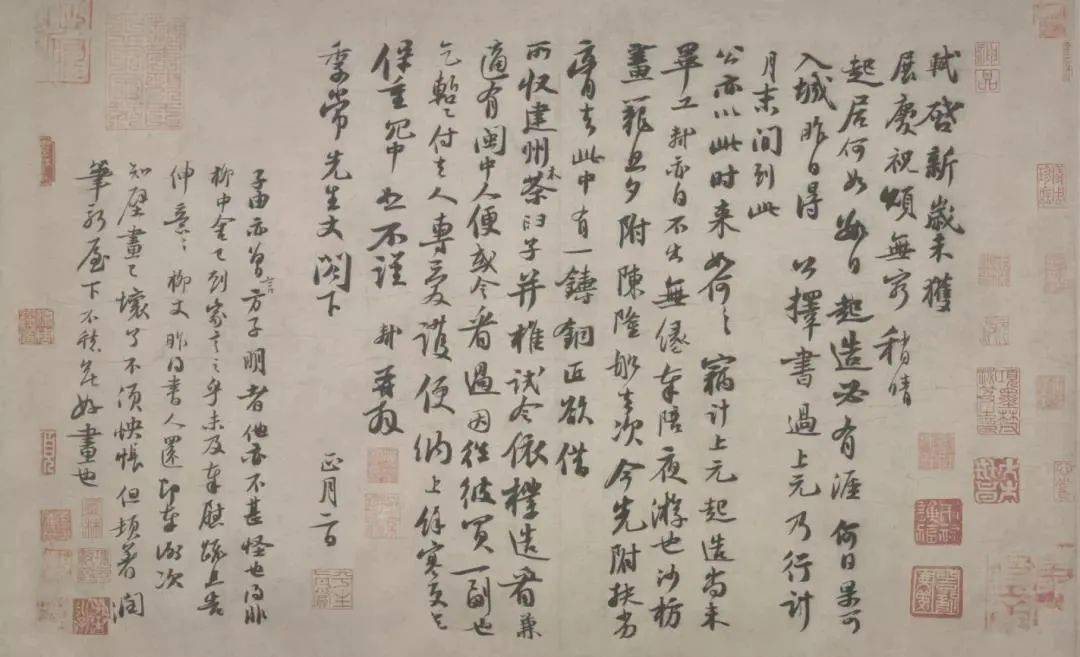 軾啓新歲未獲
展慶祝頌無窮稍晴
起居何如數日起造必有涯何日果可
入城昨日得公擇書過上元乃行計
月末間到此
公亦以此時來如何々竊計上元起造尚未
畢工軾亦自不出無緣奉陪夜遊也沙枋
畫籠旦夕附陳隆舡去次今先附扶劣
膏去此中有一鑄銅匠欲借
所收建州木茶臼子并椎試令依樣造看兼
適有閩中人便或令看過因往彼買一副也
乞暫付去人專愛護便納上餘寒更乞
保重冗中恕不謹軾再拜
季常先生丈閤下
正月二日
子由亦曾言方子明者他亦不甚怪也得非
柳中舍已到家言之乎未及奉慰疏且告
伸意々柳丈昨得書人還即奉謝次
知壁畫已壞了不須怏悵但頓着潤
筆新屋下不愁無好畫也
神品